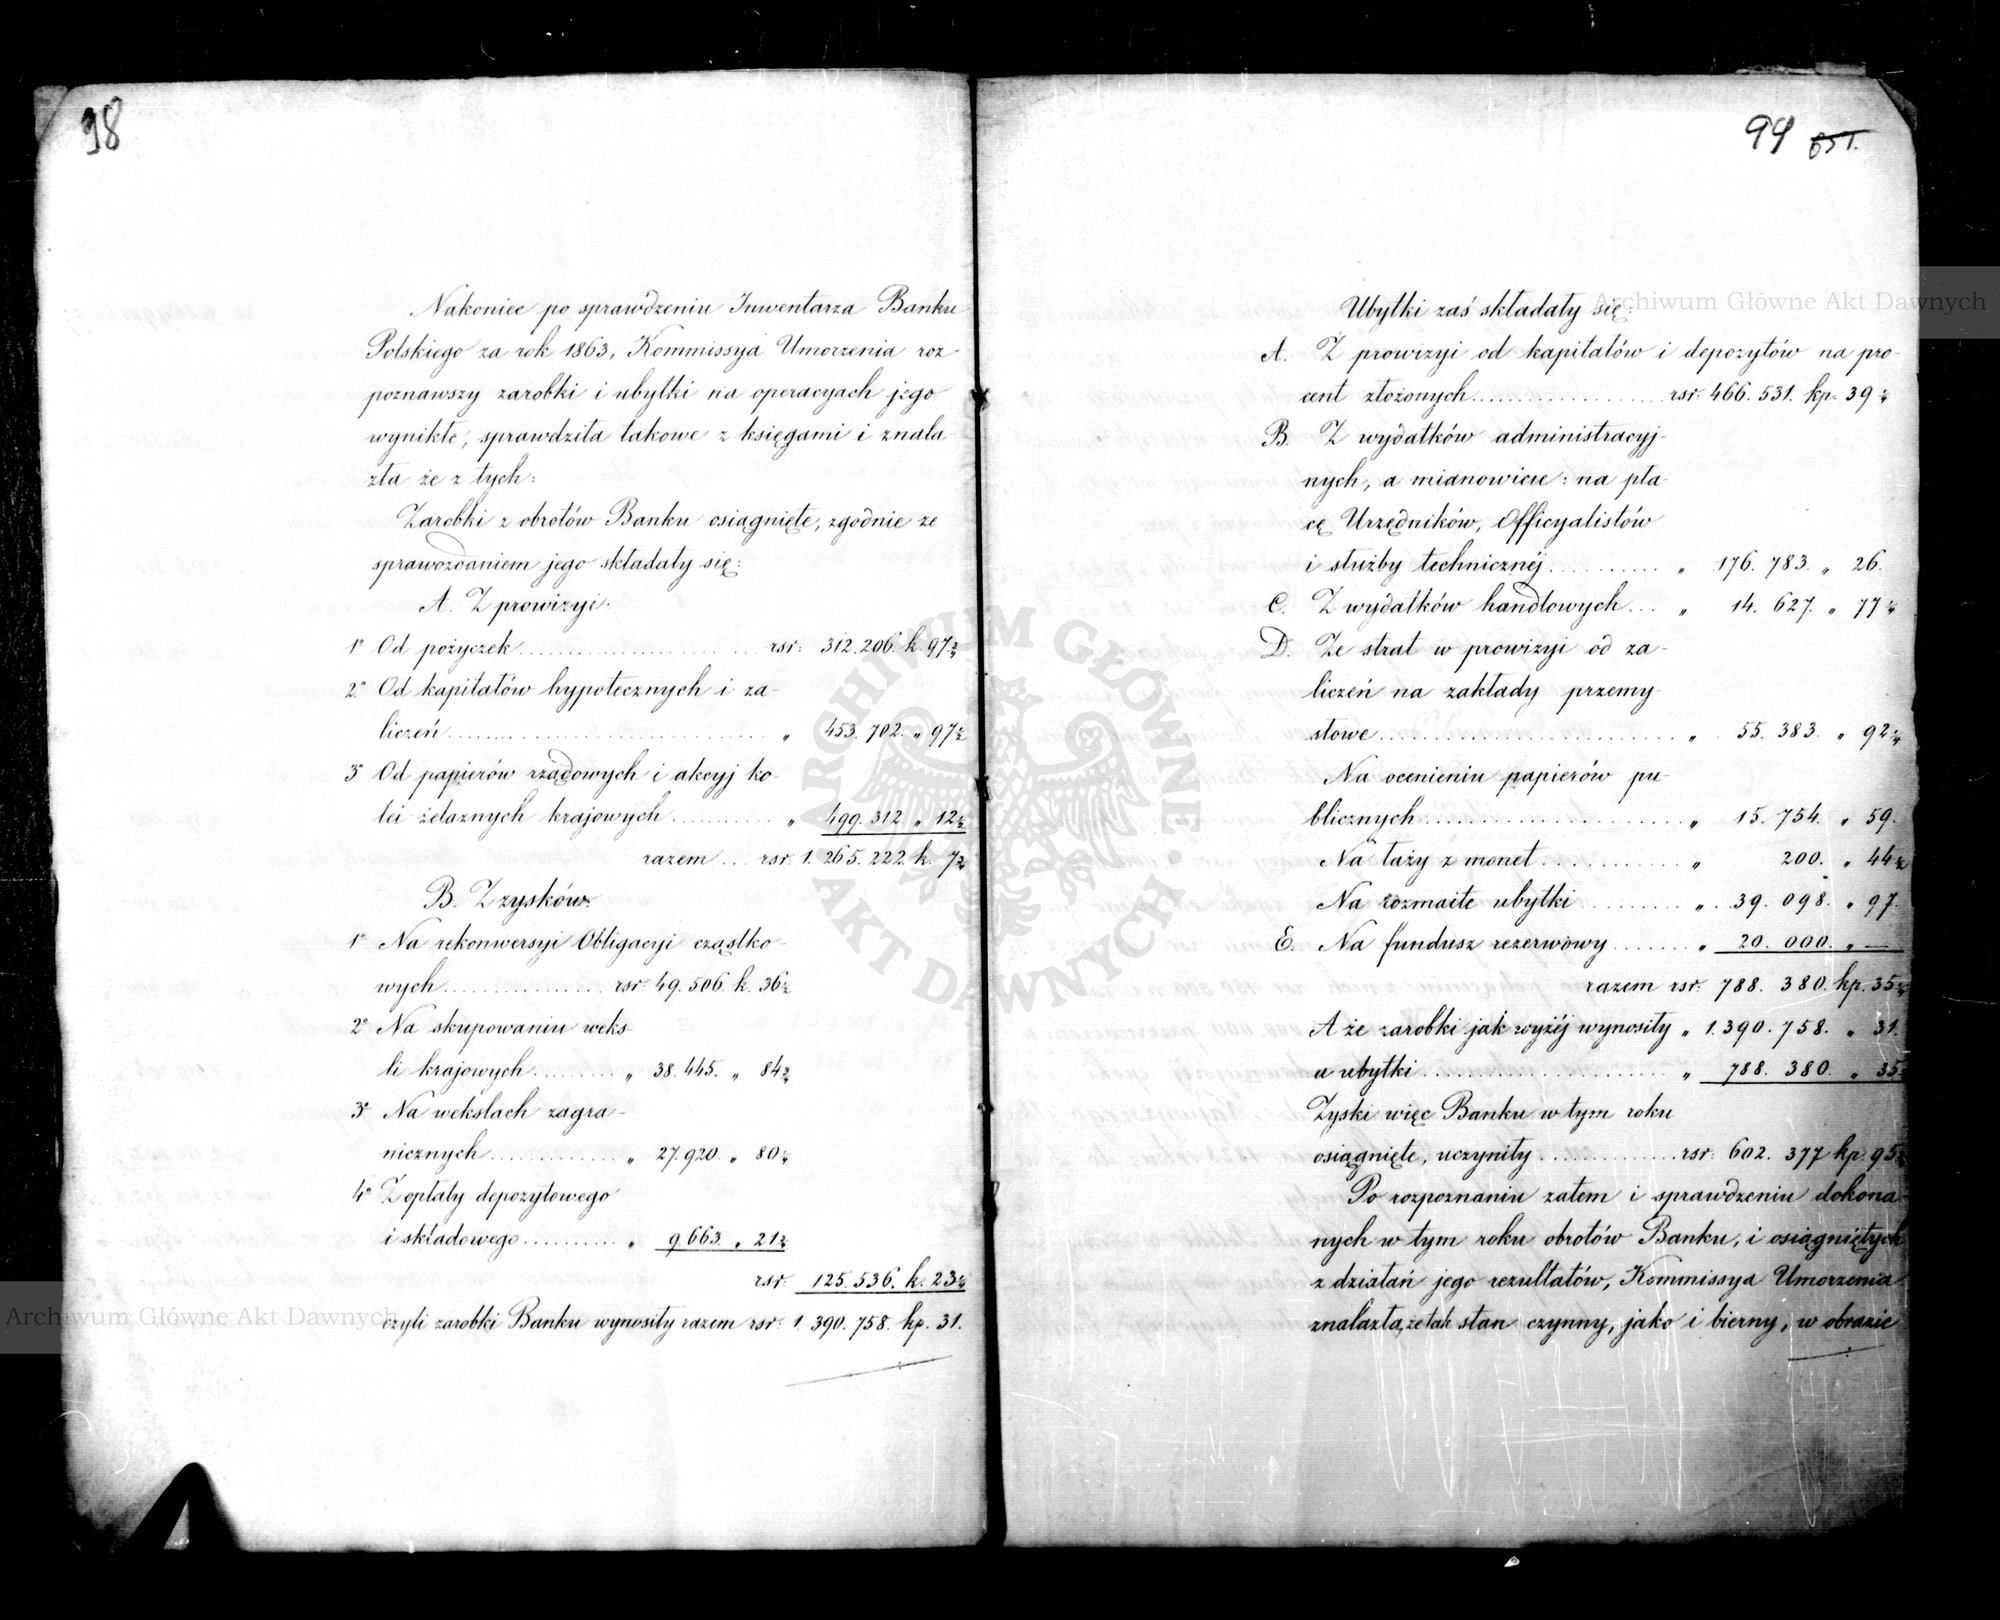 98
Nakoniec po sprawdzeniu Inwentarza Banku
Polskiego za rok 1863, Kommissya Umorzenia roz-
poznawszy zarobki i ubytki na operacyach jego
wynikłe, sprawdziła takowe z księgami i znala-
zła że z tych:
Zarobki z obrotów Banku osiągnięte, zgodnie ze
sprawozdaniem jego składały się:
A. Z prowizyi:
1º Od pożyczek rsr: 312.206. k. 97
2º Od kapitałów hypotecznych i za-
liczeń „ 453.702. „ 97½
3º Od papierów rządowych i akcyj ko-
lei żelaznych krajowych „ 499.312 „ 12½
razem rsr. 1.265.222. k. 7
B. Z zysków.
1º Na rekonwersyi Obligacyi cząstko-
wych rsr. 49.506. k. 36½
2º Na skupowaniu weks-
li krajowych „ 38.445. „ 84
3º Na wekslach zagra-
nicznych „ 27.920. „ 80
4º Z opłaty depozytowego
i składowego „ 9.663. „ 21
rsr: 125.536. k. 23
czyli zarobki Banku wynosiły razem rsr: 1.390.758. kp. 31.
99
Ubytki zaś składały się:
A. Z prowizyi od kapitałów i depozytów na pro-
cent złożonych rsr. 466.531. kp. 39
B. Z wydatków administracyj-
nych, a mianowicie: na pła-
cę Urzędników, Officyalistów
i służby technicznéj „ 176.783. „ 26.
C. Z wydatków handlowych „ 14.627. „ 77
D. Ze strat w prowizyi od za-
liczeń na zakłady przemy-
słowe „ 55.383. „ 92
Na ocenieniu papierów pu-
blicznych „ 15.754. „ 59.
Na taży z monet „ 200. „ 44
Na rozmaite ubytki „ 39.098. „ 97.
E. Na fundusz rezerwowy „ 20.000. „ —
razem rsr. 788.380. kp. 35
A że zarobki jak wyżéj wynosiły „ 1.390.758. „ 31.
a ubytki „ 788.380. „ 35
Zyski więc Banku w tym roku
osiągnięte, uczyniły rsr. 602.377 kp. 95
Po rozpoznaniu zatem i sprawdzeniu dokona-
nych w tym roku obrotów Banku, i osiągniętych
z działań jego rezultatów, Kommissya Umorzenia
znalazła, że tak stan czynny, jako i bierny, w obrazie
Archiwum Główne Akt Dawnych
Archiwum Główne Akt Dawnych
ARCHIWUM GŁÓWNE · AKT DAWNYCH ·